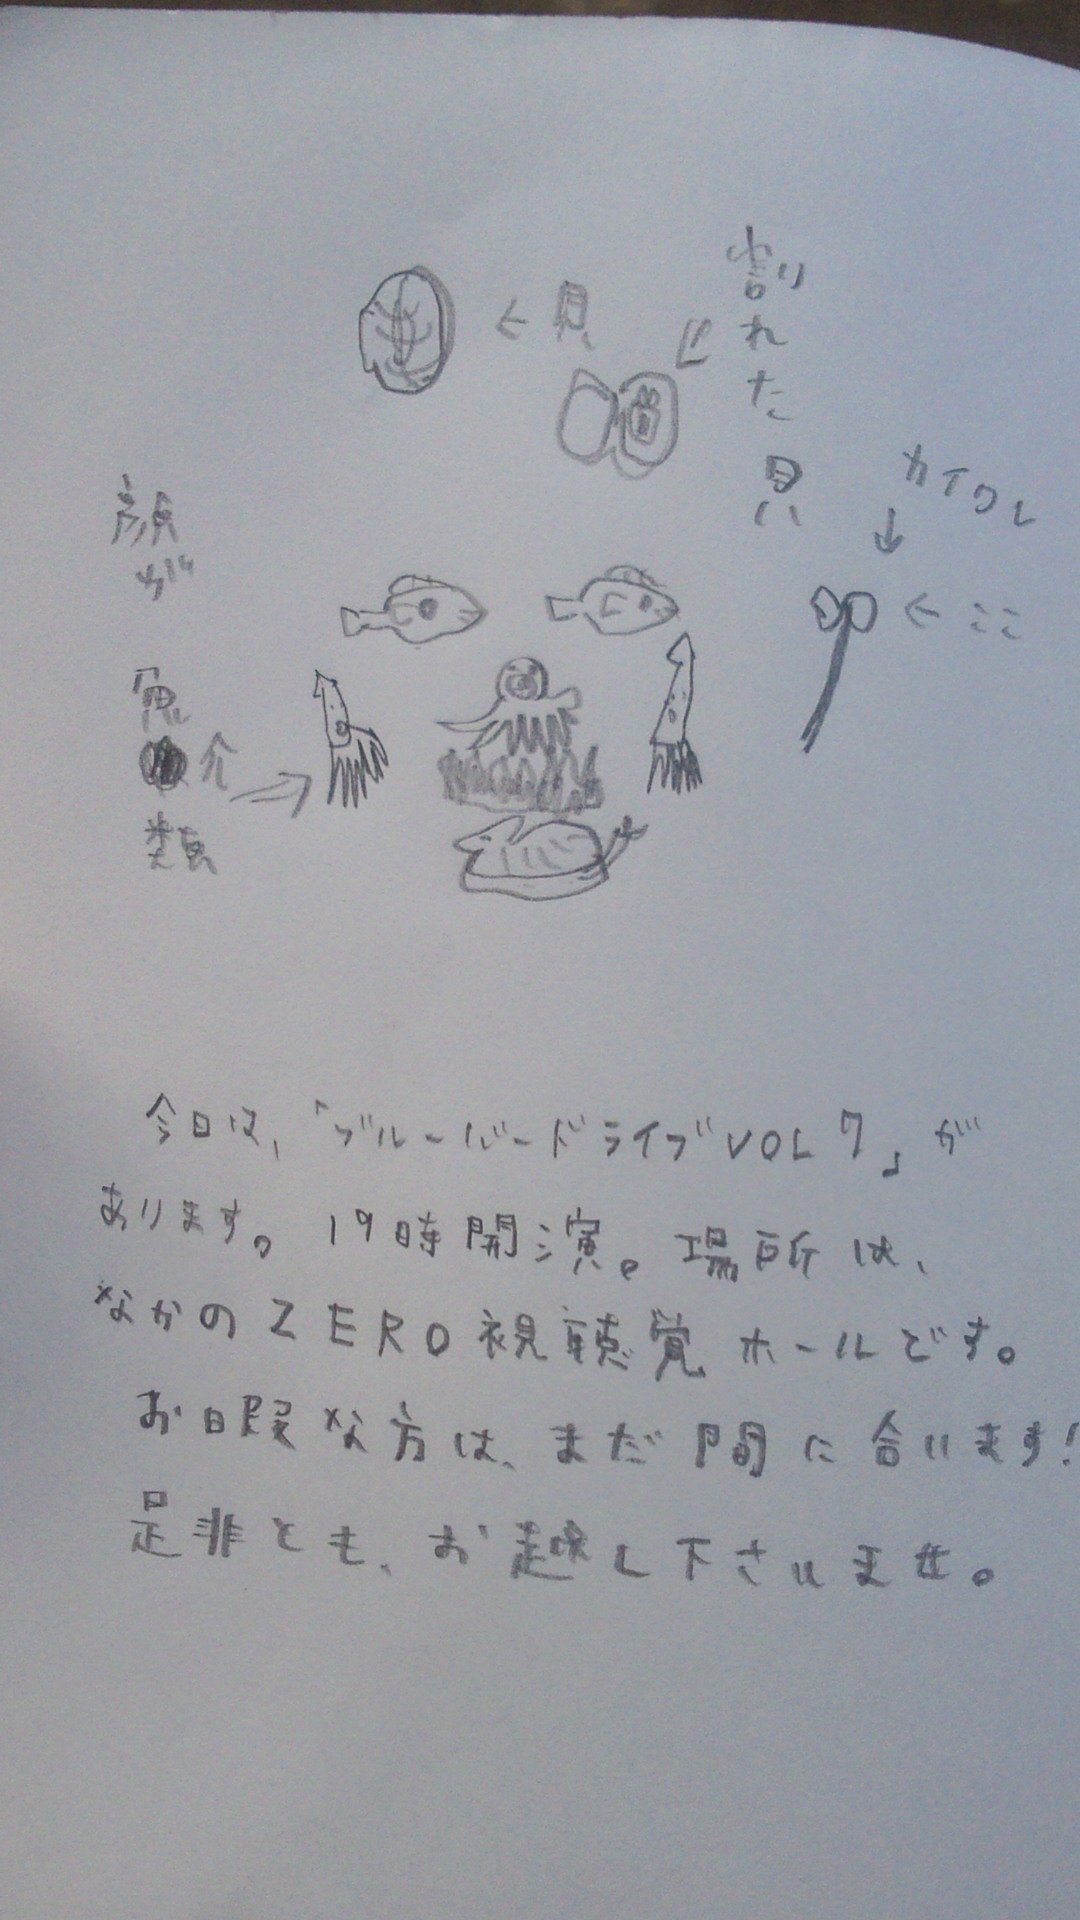 割れた貝
貝
カイワレ
ここ
顔が
魚
介
類
今日は、「ブルーバードライブVOL7」が
あります。19時開演。場所は、
なかのZERO視聴覚ホールです。
お暇な方は、まだ間に合います!
是非とも、お越し下さいませ。